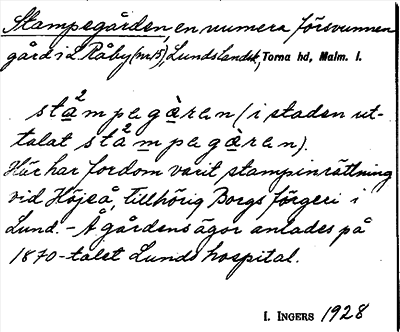 Stampegården en numera försvunnen
gård i L Råby (nr 15), Lunds landsk, Torna hd, Malm. l.
stå²mpagɑ̀ran (i staden ut-
talat stå²mpagɑ̀ran).
Här har fordom varit stampinrättning
vid Höjeå, tillhörig Borgs färgeri i
Lund. - Å gårdens ägor anlades på
1870-talet Lunds hospital.
I. INGERS 1928